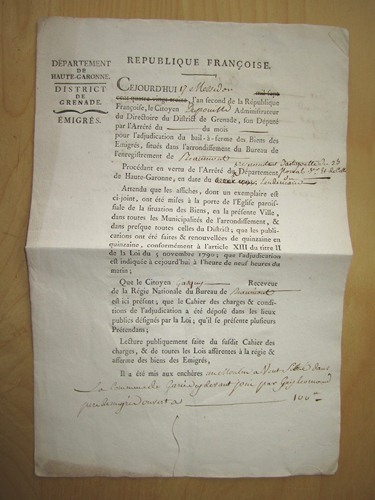 RÉPUBLIQUE FRANÇOISE.
DÉPARTEMENT
DE
HAUTE-GARONNE.
DISTRICT
DE
GRENADE.
ÉMIGRÉS.
CEJOURD'HUI 17 Messidor mil sept
cent quatre vingt-treize, l'an second de la République
Françoise, le Citoyen Administrateur
du Directoire du District de Grenade, son Député
par l'Arrêté du du mois
pour l'adjudication du bail-à-ferme des Biens des
Émigrés, situés dans l'arrondissement du Bureau de
l'enregistrement de Beaumont
Procédant en vertu de l'Arrêté du Département
de Haute-Garonne, en date du
Attendu que les affiches, dont un exemplaire est
ci-joint, ont été mises à la porte de l'Eglise parois-
siale de la situation des Biens, en la présente Ville,
dans toutes les Municipalités de l'arrondissement, &
dans presque toutes celles du District; que les publi-
cations ont été faites & renouvellées de quinzaine en
quinzaine, conformément à l'article XIII du titre II
de la Loi du 5 novembre 1790; que l'adjudication
est indiquée à cejourd'hui à l'heure de neuf heures du
matin;
Que le Citoyen Receveur
de la Régie Nationale du Bureau de Beaumont
est ici présent; que le Cahier des charges & condi-
tions de l'adjudication a été déposé dans les lieux
publics désignés par la Loi; qu'il se présente plusieurs
Prétendans;
Lecture publiquement faite du susdit Cahier des
charges, & de toutes les Lois afférentes à la régie &
afferme des biens des Emigrés.
Il a été mis aux enchères un Moulin à Vent situé dans
La Commune de jouï par
ouvert a 100